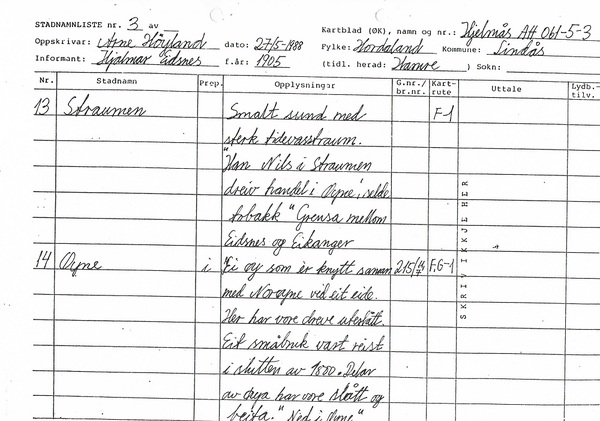 STADNAMNLISTE nr. 3 av
Kartblad (ØK), namn og nr.: Hjelmås AH 061-5-3
Oppskrivar: Arne Höyland dato: 27/5-1988 Fylke: Hordaland Kommune: Lindås
Informant: Hjalmar Eidsnes f.år: 1905 (tidl. herad: Hamre ) Sokn:
Nr. Stadnamn Prep. Opplysningar G.nr./ br.nr. Kart- rute Uttale Lydb.- tilv.
13 Straumen Smalt sund med F-1
sterk tidevasstraum.
"Han Nils i Straumen
dreiv handel i Øyne, selde
tobakk" Grensa mellom
Eidsnes og Eikanger
14 Øyne i Ei øy som er knytt saman 215/ F,G-1
med Norøyne ved eit eide.
Her har vore dreve uteslått.
Eit småbruk vart reist
i slutten av 1800. Delar
av øya har vore slått og
beita. "Ned i Øyne"
SKRIV IKKJE HER